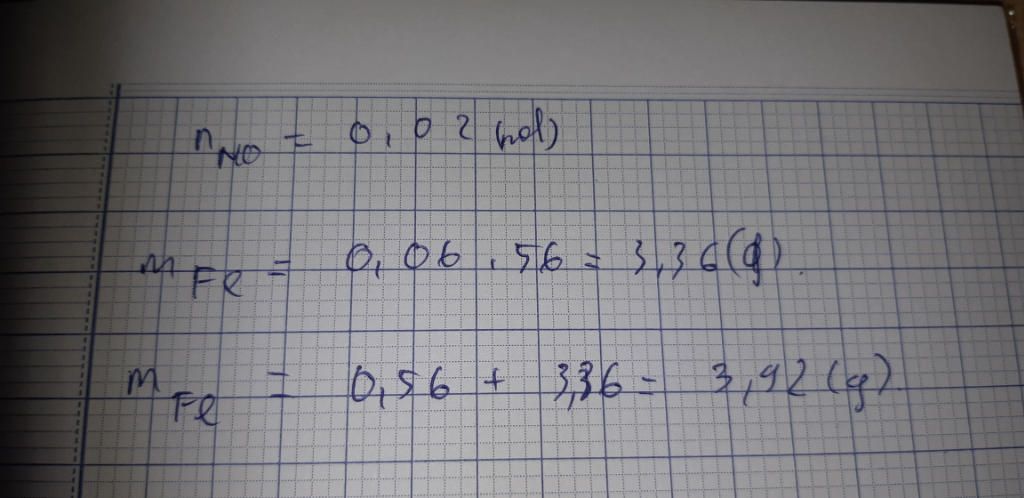 n NO = 0,02 (mol)
m Fe = 0,06 . 56 = 3,36 (g).
m Fe = 0,56 + 3,36 = 3,92 (g).